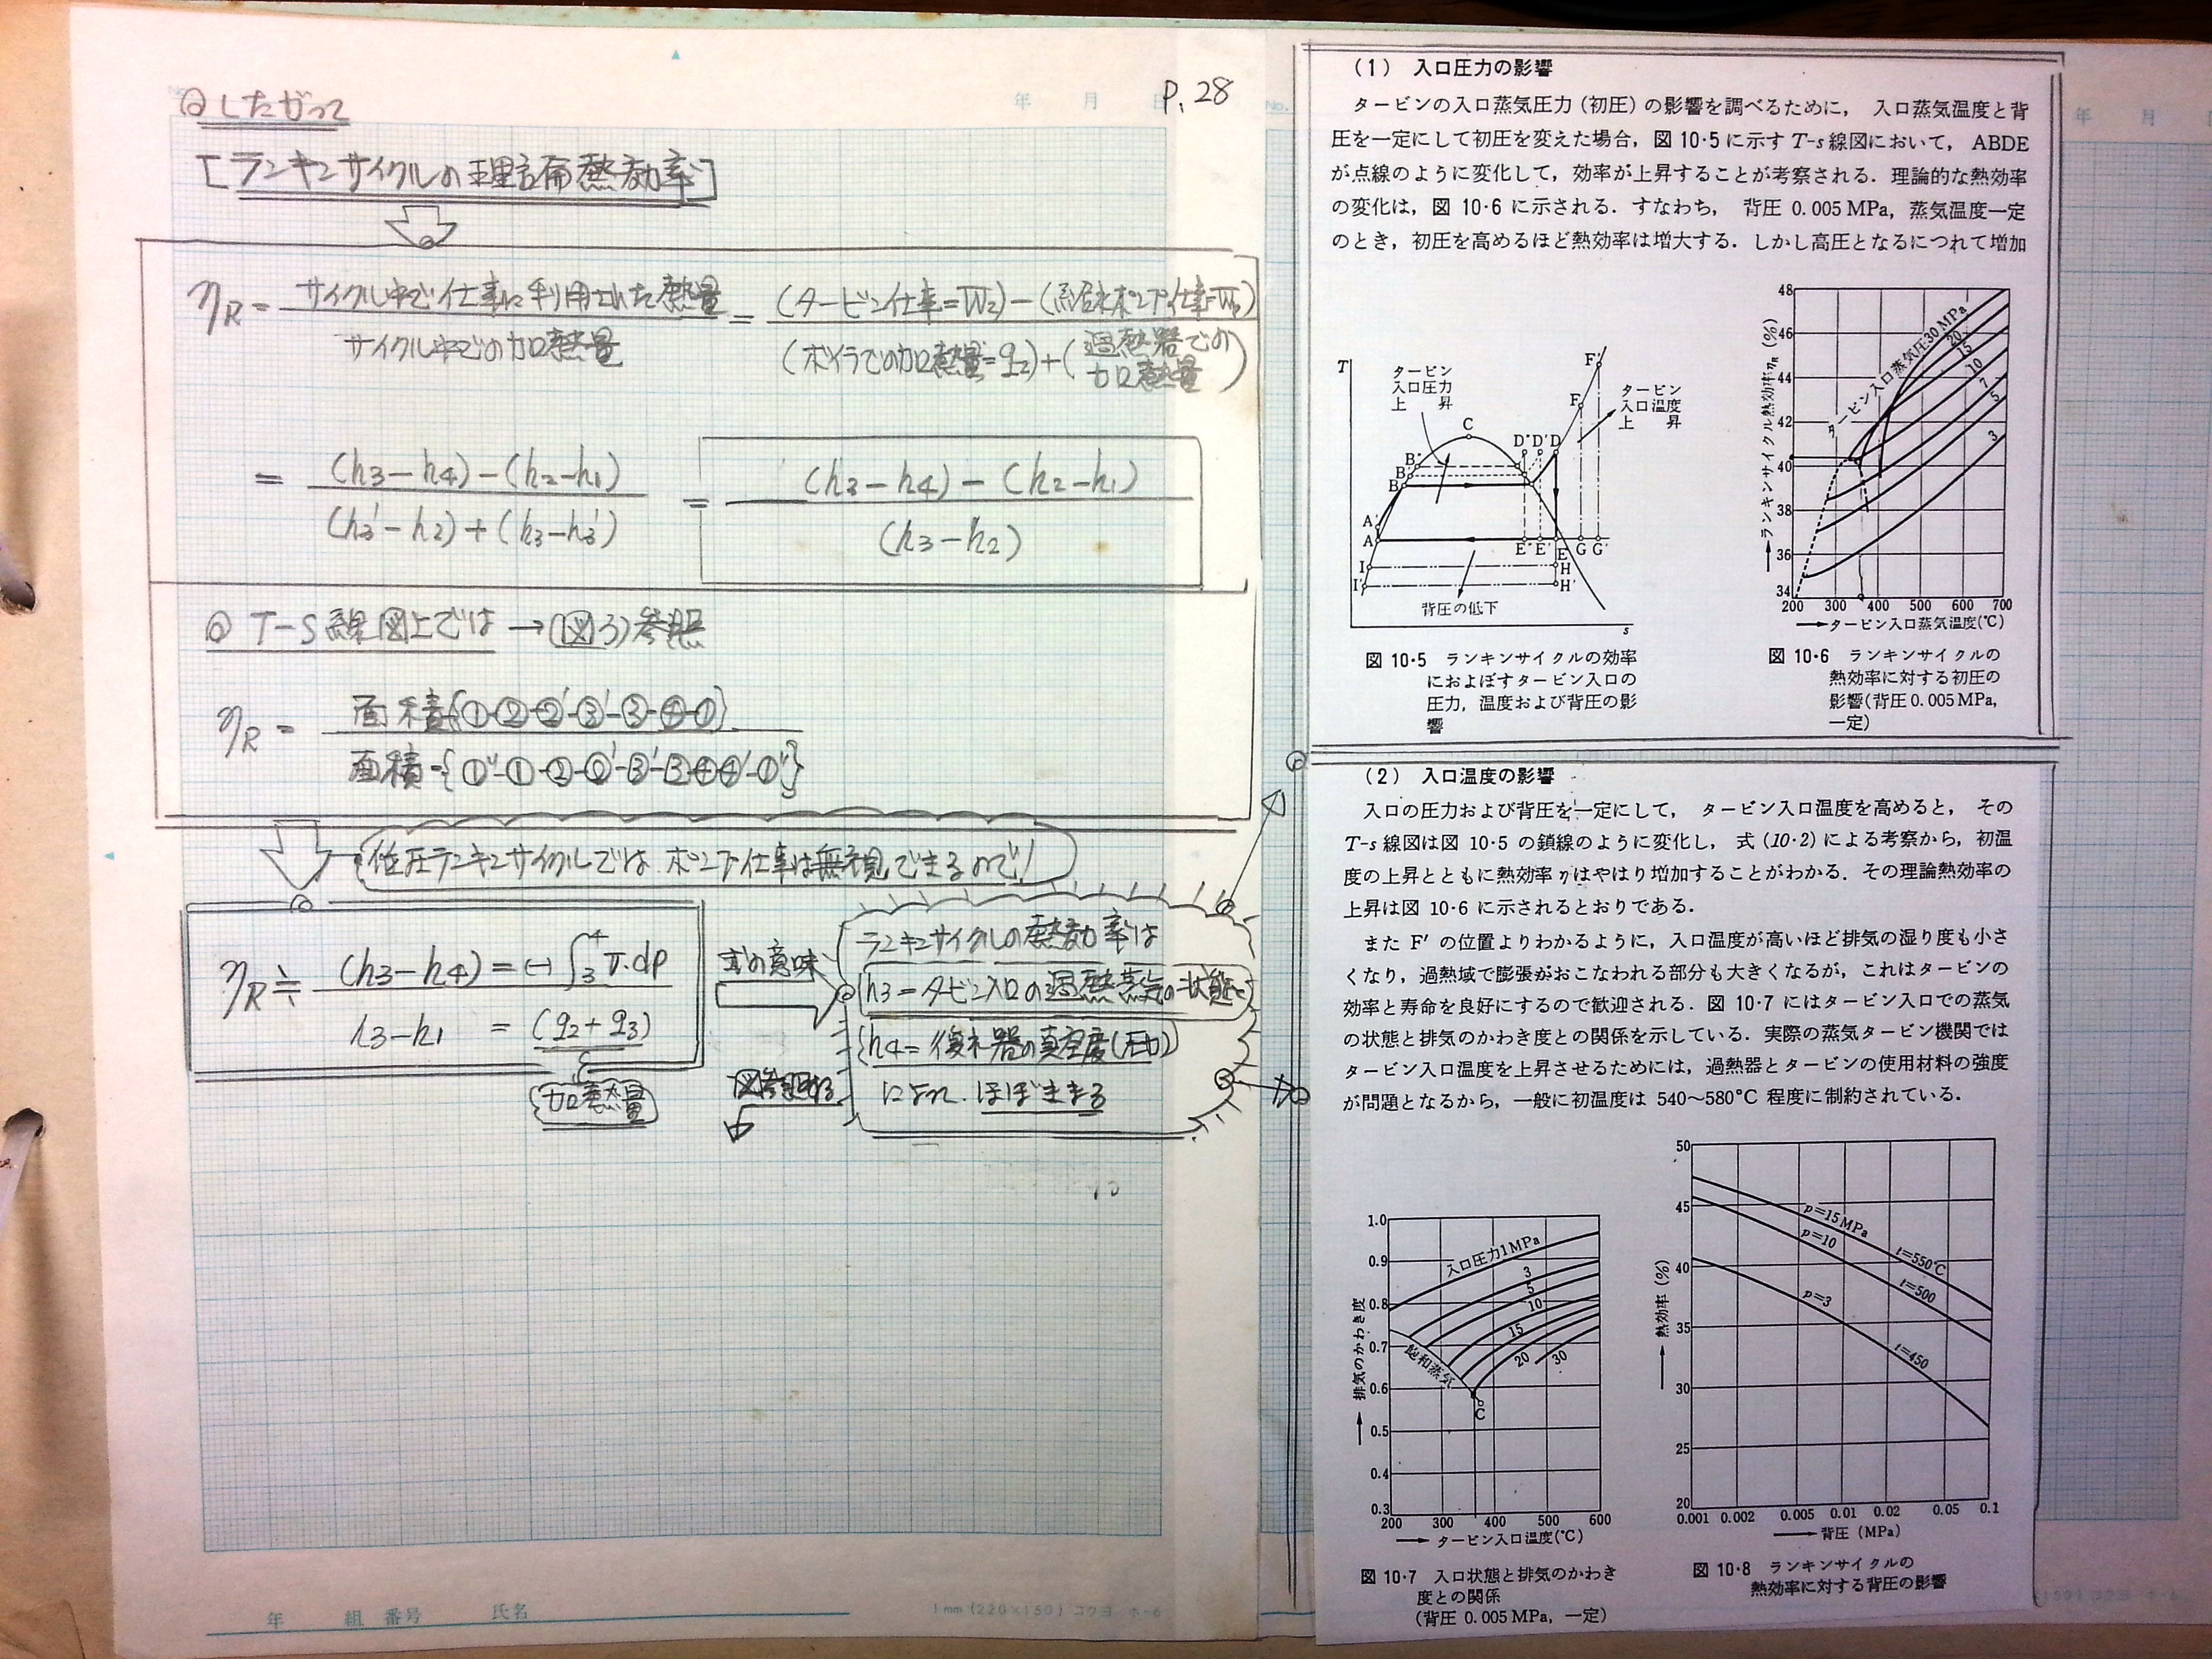 P. 28
◎したがって
[ランキンサイクルの理論熱効率]
ηR = サイクル中で仕事に利用された熱量 / サイクル中での加口熱量 = (タービン仕事=W2) − (給水ポンプ仕事=Wp) / (ボイラでの加熱量=q2) + (過熱器での加熱量)
= (h3−h4)−(h2−h1) / (h3'−h2)+(h3−h3') = (h3−h4)−(h2−h1) / (h3−h2)
◎ T−S線図上では →(図3)参照
ηR = 面積{①-②-②'-③'-③-④-①} / 面積={①''-①-②-②'-③'-③-④-④'-①''}
低圧ランキンサイクルでは、ポンプ仕事は無視できるので!
ηR≒ (h3−h4) = (−)∫3 4 v・dp / h3−h1 = (q2+q3)
加熱量
式の意味
ランキンサイクルの熱効率は
h3=タービン入口の過熱蒸気の状態と
h4=復水器の真空度(圧力)
によって、ほぼきまる
図参照する
年 月 日
No.
年 組 番号 氏名
1mm (220×150) コクヨ ホ-6
(1) 入口圧力の影響
タービンの入口蒸気圧力(初圧)の影響を調べるために, 入口蒸気温度と背
圧を一定にして初圧を変えた場合, 図 10・5 に示す T-s 線図において, ABDE
が点線のように変化して, 効率が上昇することが考察される. 理論的な熱効率
の変化は, 図 10・6 に示される. すなわち, 背圧 0.005 MPa, 蒸気温度一定
のとき, 初圧を高めるほど熱効率は増大する. しかし高圧となるにつれて増加
T
タービン
入口圧力
上 昇
タービン
入口温度
上 昇
C
F'
F
D'' D' D
B''
B'
B
A'
A
E'' E' E G G'
I H
I' H'
背圧の低下
s
図 10・5 ランキンサイクルの効率
におよぼすタービン入口の
圧力, 温度および背圧の影
響
48
46
44
42
40
38
36
34
200 300 400 500 600 700
→ランキンサイクル熱効率ηR (%)
タービン入口蒸気圧30 MPa
20
15
10
7
5
3
→タービン入口蒸気温度(℃)
図 10・6 ランキンサイクルの
熱効率に対する初圧の
影響(背圧 0.005 MPa,
一定)
(2) 入口温度の影響
入口の圧力および背圧を一定にして, タービン入口温度を高めると, その
T-s 線図は図 10・5 の鎖線のように変化し, 式 (10・2) による考察から, 初温
度の上昇とともに熱効率 η はやはり増加することがわかる. その理論熱効率の
上昇は図 10・6 に示されるとおりである.
また F′ の位置よりわかるように, 入口温度が高いほど排気の湿り度も小さ
くなり, 過熱域で膨張がおこなわれる部分も大きくなるが, これはタービンの
効率と寿命を良好にするので歓迎される. 図 10・7 にはタービン入口での蒸気
の状態と排気のかわき度との関係を示している. 実際の蒸気タービン機関では
タービン入口温度を上昇させるためには, 過熱器とタービンの使用材料の強度
が問題となるから, 一般に初温度は 540〜580°C 程度に制約されている.
1.0
0.9
0.8
0.7
0.6
0.5
0.4
0.3
200 300 400 500 600
→排気のかわき度
入口圧力1 MPa
3
5
10
15
20
30
飽和蒸気
C
→タービン入口温度(℃)
図 10・7 入口状態と排気のかわき
度との関係
(背圧 0.005 MPa, 一定)
50
45
40
35
30
25
20
0.001 0.002 0.005 0.01 0.02 0.05 0.1
→熱効率 (%)
p=15 MPa
p=10
p=3
t=550℃
t=500
t=450
→背圧 (MPa)
図 10・8 ランキンサイクルの
熱効率に対する背圧の影響